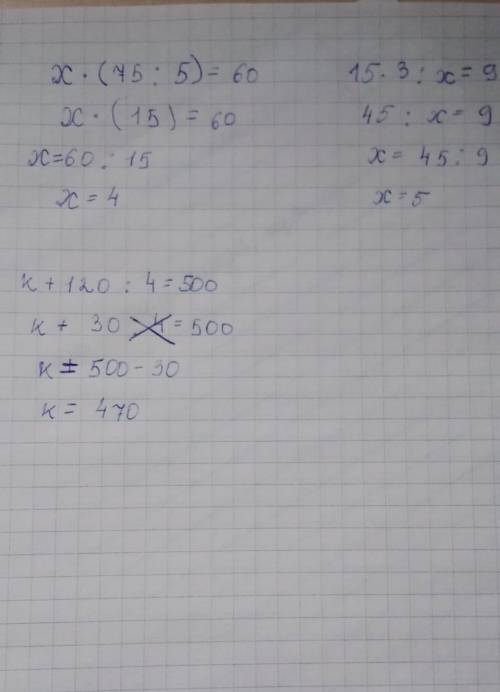 x · (75 : 5) = 60
x · (15) = 60
x = 60 : 15
x = 4
15 · 3 : x = 9
45 : x = 9
x = 45 : 9
x = 5
к + 120 : 4 = 500
к + 30 = 500
к = 500 - 30
к = 470